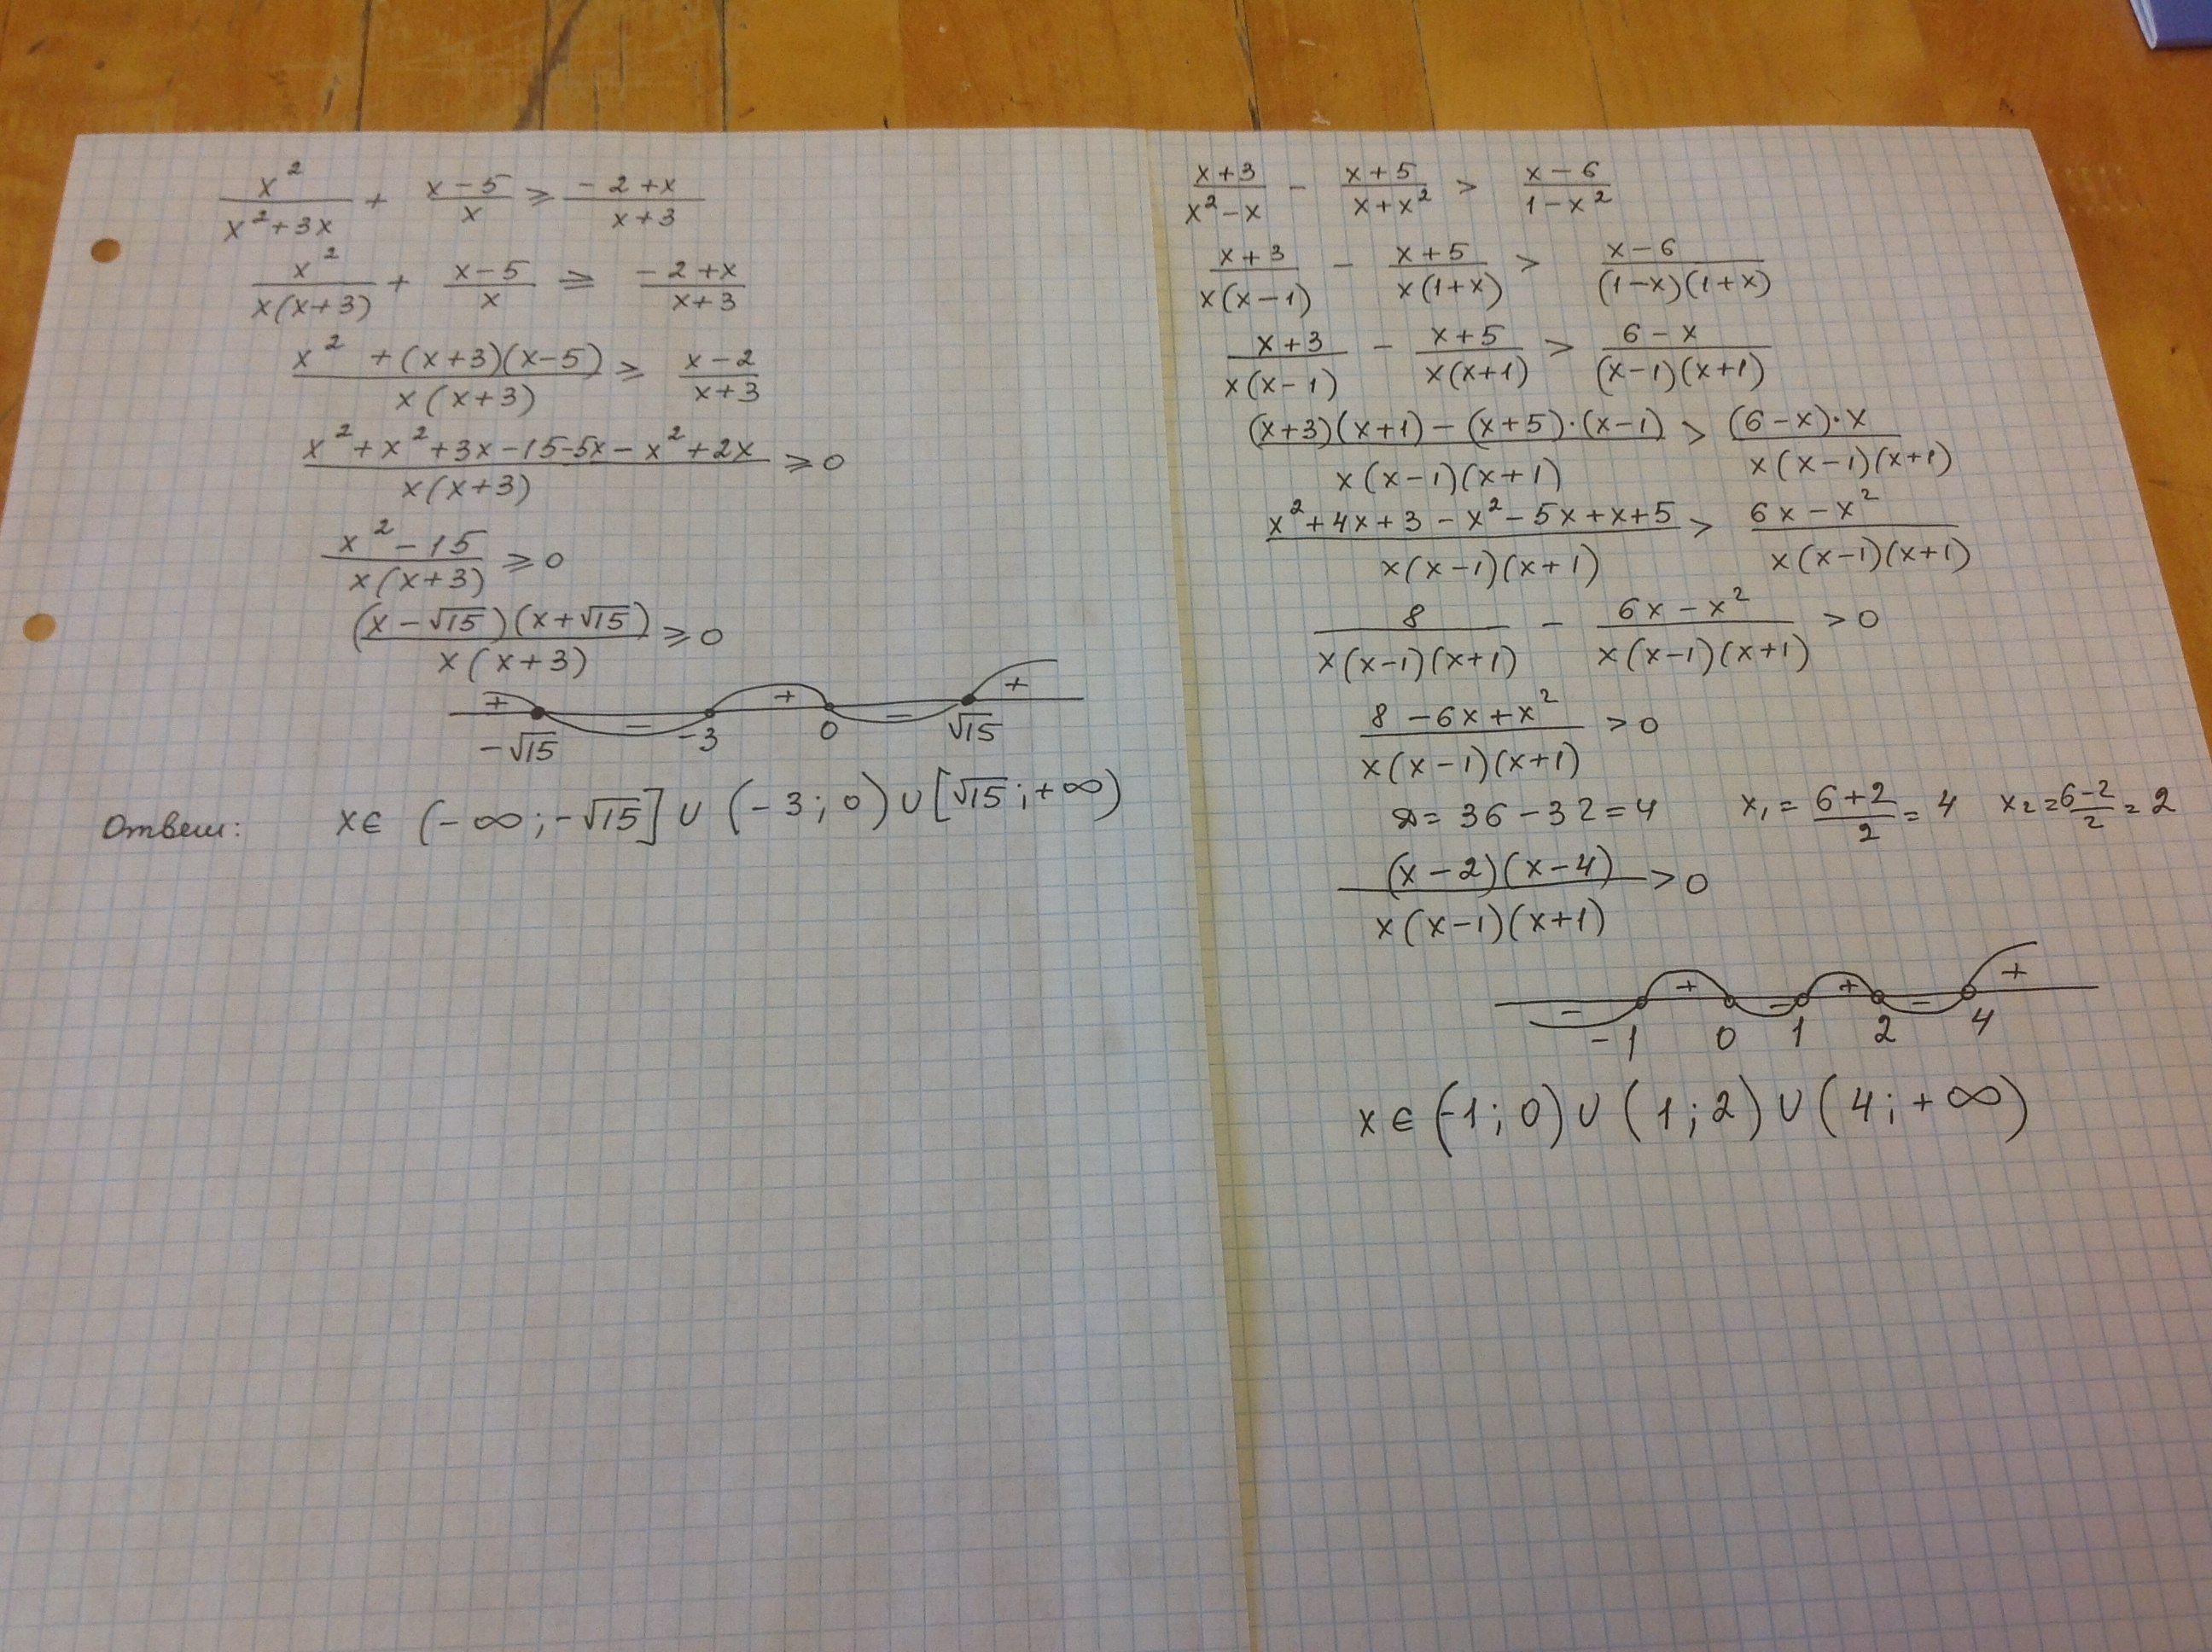 x²/(x²+3x) + (x-5)/x ≥ (-2+x)/(x+3)
x²/(x(x+3)) + (x-5)/x ≥ (-2+x)/(x+3)
(x² +(x+3)(x-5))/(x(x+3)) ≥ (x-2)/(x+3)
(x²+x²+3x-15-5x-x²+2x)/(x(x+3)) ≥ 0
(x²-15)/(x(x+3)) ≥ 0
((x-√15)(x+√15))/(x(x+3)) ≥ 0
+ - + - +
-√15 -3 0 √15
Ответ: x∈ (-∞;-√15] ∪ (-3;0) ∪ [√15;+∞)
(x+3)/(x²-x) - (x+5)/(x+x²) > (x-6)/(1-x²)
(x+3)/(x(x-1)) - (x+5)/(x(1+x)) > (x-6)/((1-x)(1+x))
(x+3)/(x(x-1)) - (x+5)/(x(x+1)) > (6-x)/((x-1)(x+1))
((x+3)(x+1)-(x+5)·(x-1))/(x(x-1)(x+1)) > ((6-x)·x)/(x(x-1)(x+1))
(x²+4x+3-x²-5x+x+5)/(x(x-1)(x+1)) > (6x-x²)/(x(x-1)(x+1))
8/(x(x-1)(x+1)) - (6x-x²)/(x(x-1)(x+1)) > 0
(8-6x+x²)/(x(x-1)(x+1)) > 0
D=36-32=4 x₁=(6+2)/2=4 x₂=(6-2)/2=2
((x-2)(x-4))/(x(x-1)(x+1)) > 0
- + - + - +
-1 0 1 2 4
x∈(-1;0)∪(1;2)∪(4;+∞)